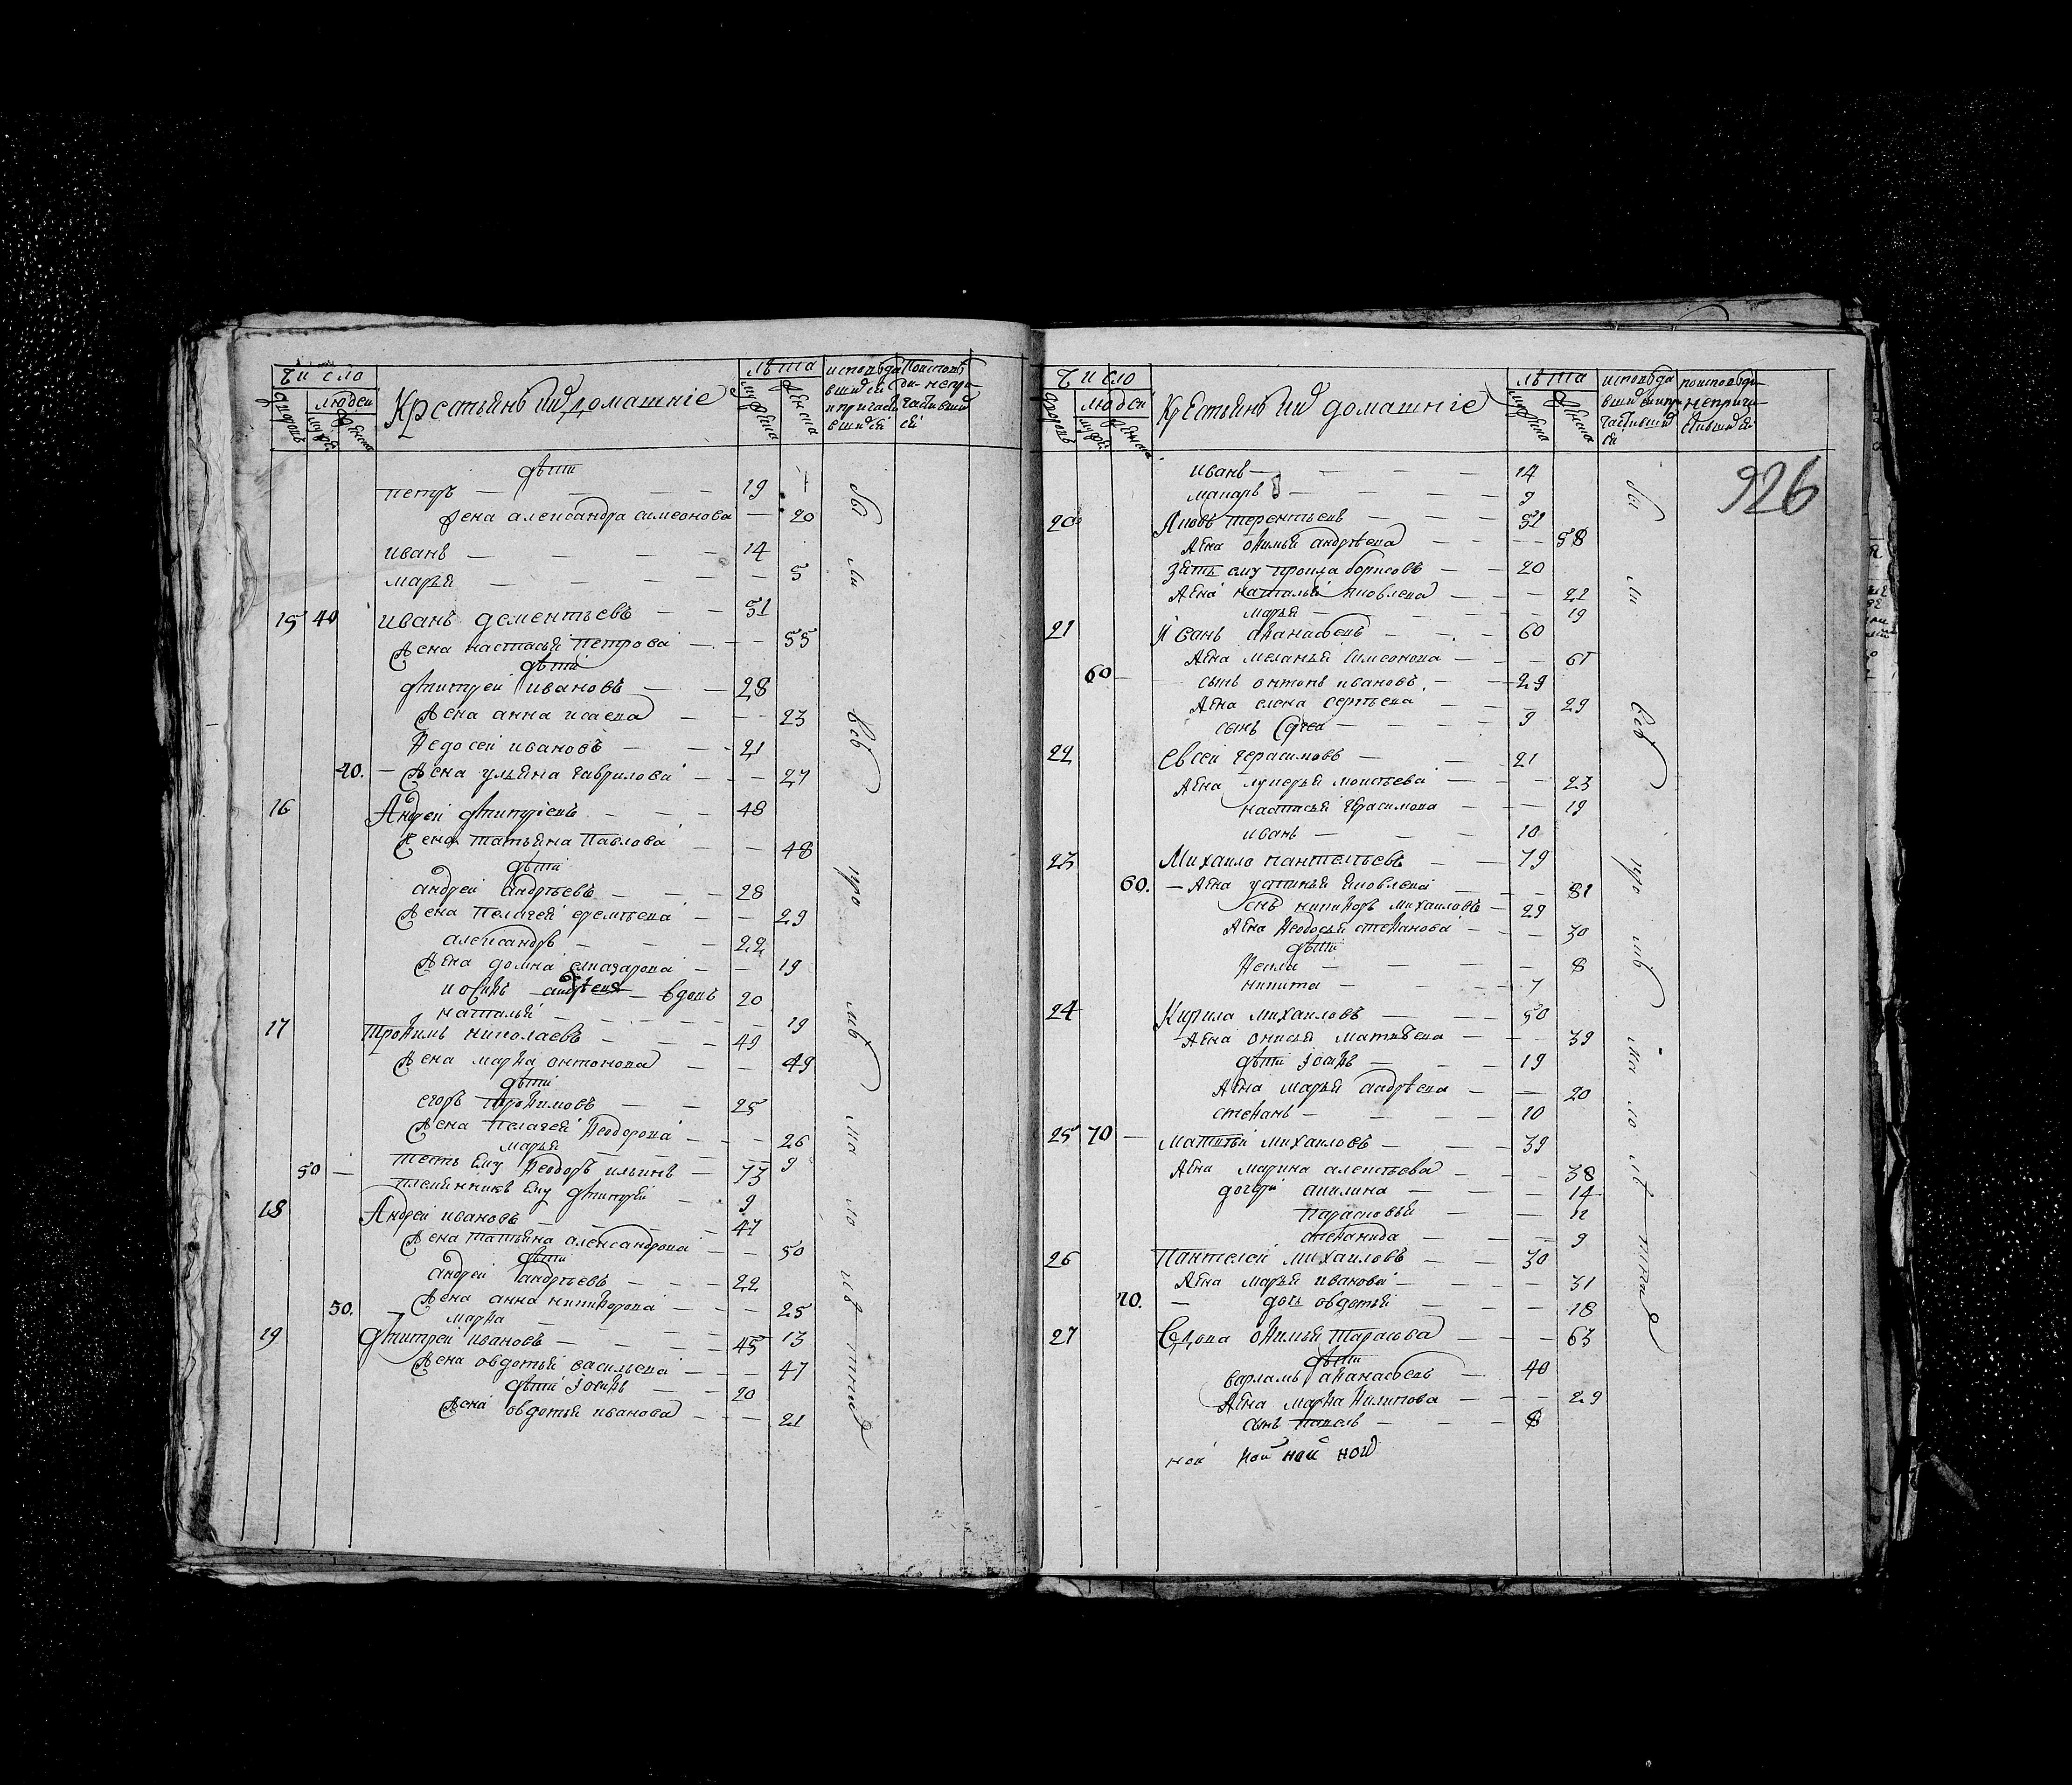 Число
людей
Крестьянѣ ихъ домашніе
лѣта
дѣти
петръ — 19
жена александра симеонова — 20
иванъ — 14
марья — 5
15 40 иванъ дементьевъ — 51
жена настасья петрова — 55
дѣти
дмитрей ивановъ — 28
жена анна исаева — 23
Ѳедосей ивановъ — 21
40. — жена ульяна гаврилова — 27
16 Андрей дмитріевъ — 48
жена татьяна павлова — 48
дѣти
андрей андрѣевъ — 28
жена пелагея еремѣева — 29
александръ — 22
жена домна — 19
іосифъ — вдовъ 20
наталья — 19
17 трофимъ николаевъ — 49
жена марфа антонова — 49
дѣти
егоръ трофимовъ — 25
жена пелагея Ѳеодорова — 26
марья — 9
50 — тесть ему Ѳеодоръ ильинъ — 73
племянникъ ему дмитрей — 9
18 Андрей ивановъ — 47
жена татьяна александрова — 50
дѣти
андрей андрѣевъ — 22
50. жена анна никифорова — 25
марфа — 13
19 дмитрей ивановъ — 45
жена овдотья васильева — 47
дѣти іосифъ — 20
жена овдотья иванова — 21
Число
людей
Крестьянѣ ихъ домашніе
лѣта
926
иванъ — 14
макаръ — 9
20 Яковъ терентьевъ — 51
жена офимья андрѣева — 58
зять ему борисовъ — 20
жена наталья яковлева — 22
марья — 19
21 Иванъ афанасьевъ — 60
жена меланья симеонова — 61
60 — сынъ антонъ ивановъ — 29
жена елена сергѣева — 29
сынъ сергей — 9
22 евсей герасимовъ — 21
жена лукерья моисѣева — 23
настасья герасимова — 19
иванъ — 10
23 Михаило пантелѣевъ — 79
60. — жена устинья яковлева — 81
снъ никифоръ михаиловъ — 29
жена Ѳеодосья степанова — 30
дѣти
Ѳекла — 8
никита — 7
24 Кирила михаиловъ — 50
жена анисья матвѣева — 39
дѣти іосифъ — 19
жена марья андрѣева — 20
степанъ — 10
25 70 — матвѣй михаиловъ — 39
жена марина алексѣева — 38
дочери акилина — 14
парасковья — 11
степанида — 9
26 Пантелей михаиловъ — 30
жена марья иванова — 31
70. — дочь овдотья — 18
27 вдова офимья тарасова — 63
дѣти
варламъ афанасьевъ — 40
жена марфа филипова — 29
сынъ павелъ — 8
ной ной ной ной